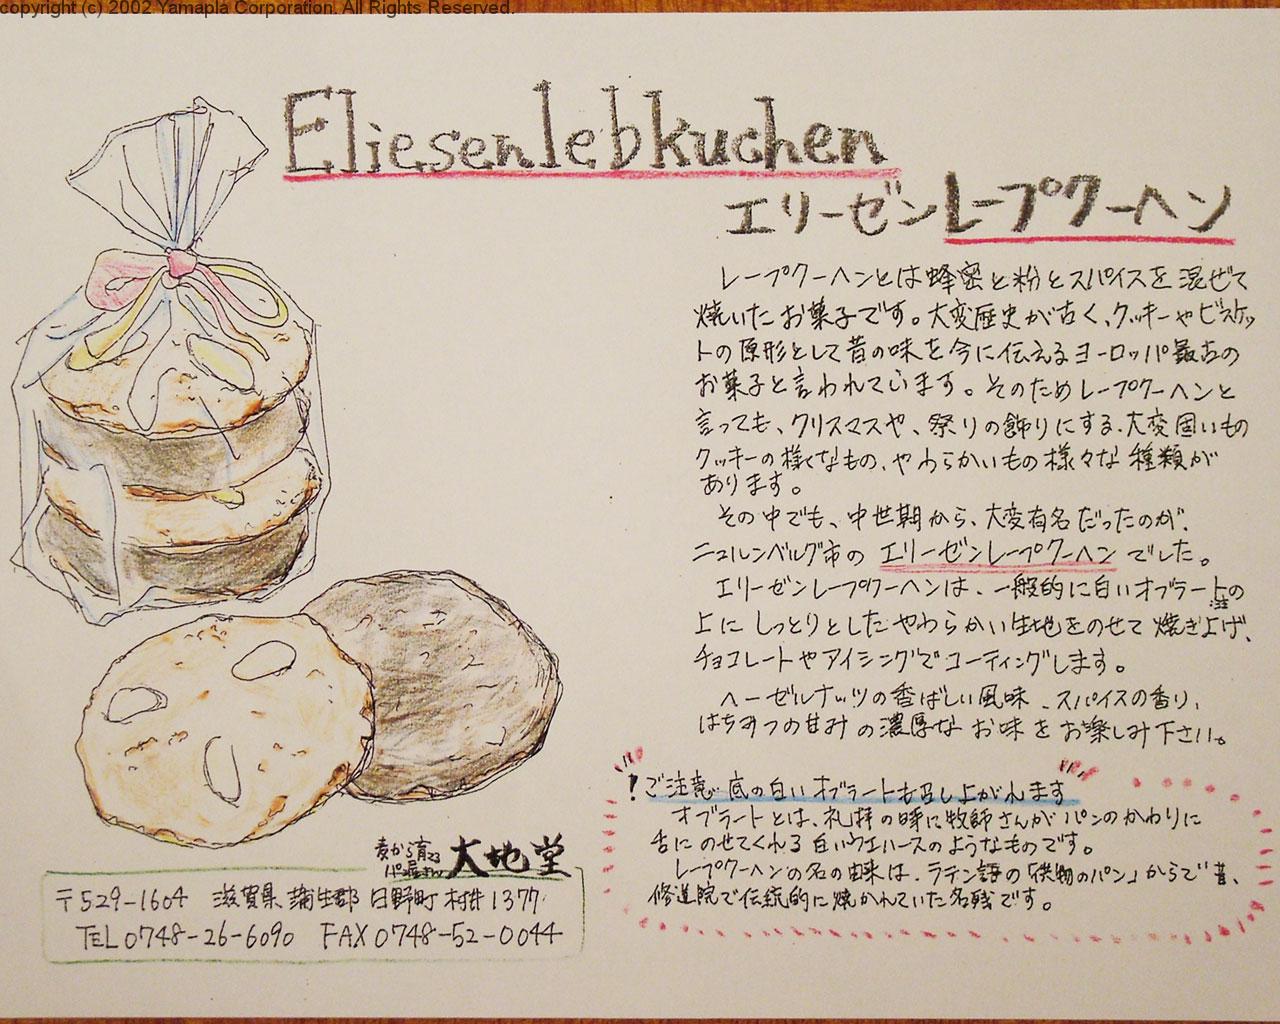 copyright (c) 2002 Yamapla Corporation. All Rights Reserved.
Elisenlebkuchen
エリーゼンレープクーヘン
レープクーヘンとは蜂蜜と粉とスパイスを混ぜて
焼いたお菓子です。大変歴史が古く、クッキーやビスケッ
トの原形として昔の味を今に伝えるヨーロッパ最古の
お菓子と言われています。そのためレープクーヘンと
言っても、クリスマスや、祭りの飾りにする、大変固いもの
クッキーの様なもの、やわらかいもの様々な種類が
あります。
その中でも、中世期から、大変有名だったのが、
ニュルンベルグ市のエリーゼンレープクーヘンでした。
エリーゼンレープクーヘンは、一般的に白いオブラートの
注
上にしっとりとしたやわらかい生地をのせて焼き上げ、
チョコレートやアイシングでコーティングします。
ヘーゼルナッツの香ばしい風味、スパイスの香り、
はちみつの甘みの濃厚なお味をお楽しみ下さい。
!ご注意 底の白いオブラートも召し上がれます
オブラートとは、礼拝の時に牧師さんがパンのかわりに
舌にのせてくれる白いウエハースのようなものです。
レープクーヘンの名の由来は、ラテン語の「供物のパン」からで昔、
修道院で伝統的に焼かれていた名残です。
麦から育てる
パン屋さん 大地堂
〒529-1604 滋賀県蒲生郡日野町村井1377
TEL 0748-26-6090 FAX 0748-52-0044